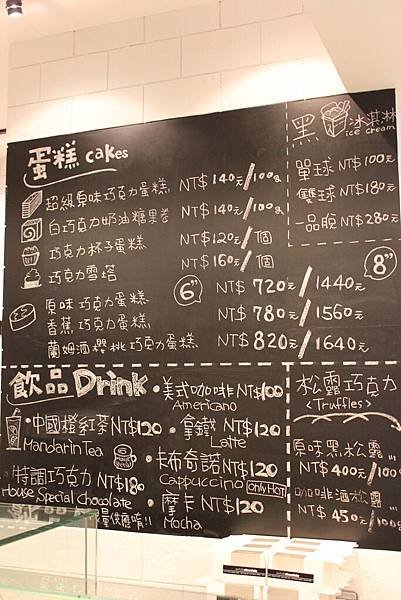 蛋糕 cakes
超級原味巧克力蛋糕 NT$140元/100g
白巧克力奶油糖果卷 NT$140元/100g
巧克力杯子蛋糕 NT$120元/個
巧克力雪塔 NT$160元/個
6" 8"
原味巧克力蛋糕 NT$720/1440元
香蕉巧克力蛋糕 NT$780/1560元
蘭姆酒櫻桃巧克力蛋糕 NT$820/1640元
黑 冰淇淋
ice cream
單球 NT$100元
雙球 NT$180元
一品脫 NT$280元
飲品 Drink
·美式咖啡 NT$100
Americano
·中國橙紅茶 NT$120
Mandarin Tea
·拿鐵 NT$120
Latte
·特調巧克力 NT$180
House Special chocolate
量供應唷!!
·卡布奇諾 NT$120
Cappuccino only Hot
·摩卡 NT$120
Mocha
松露巧克力
<Truffles>
原味黑松露
NT$400元/100
咖啡酒松露
NT$450元/100g